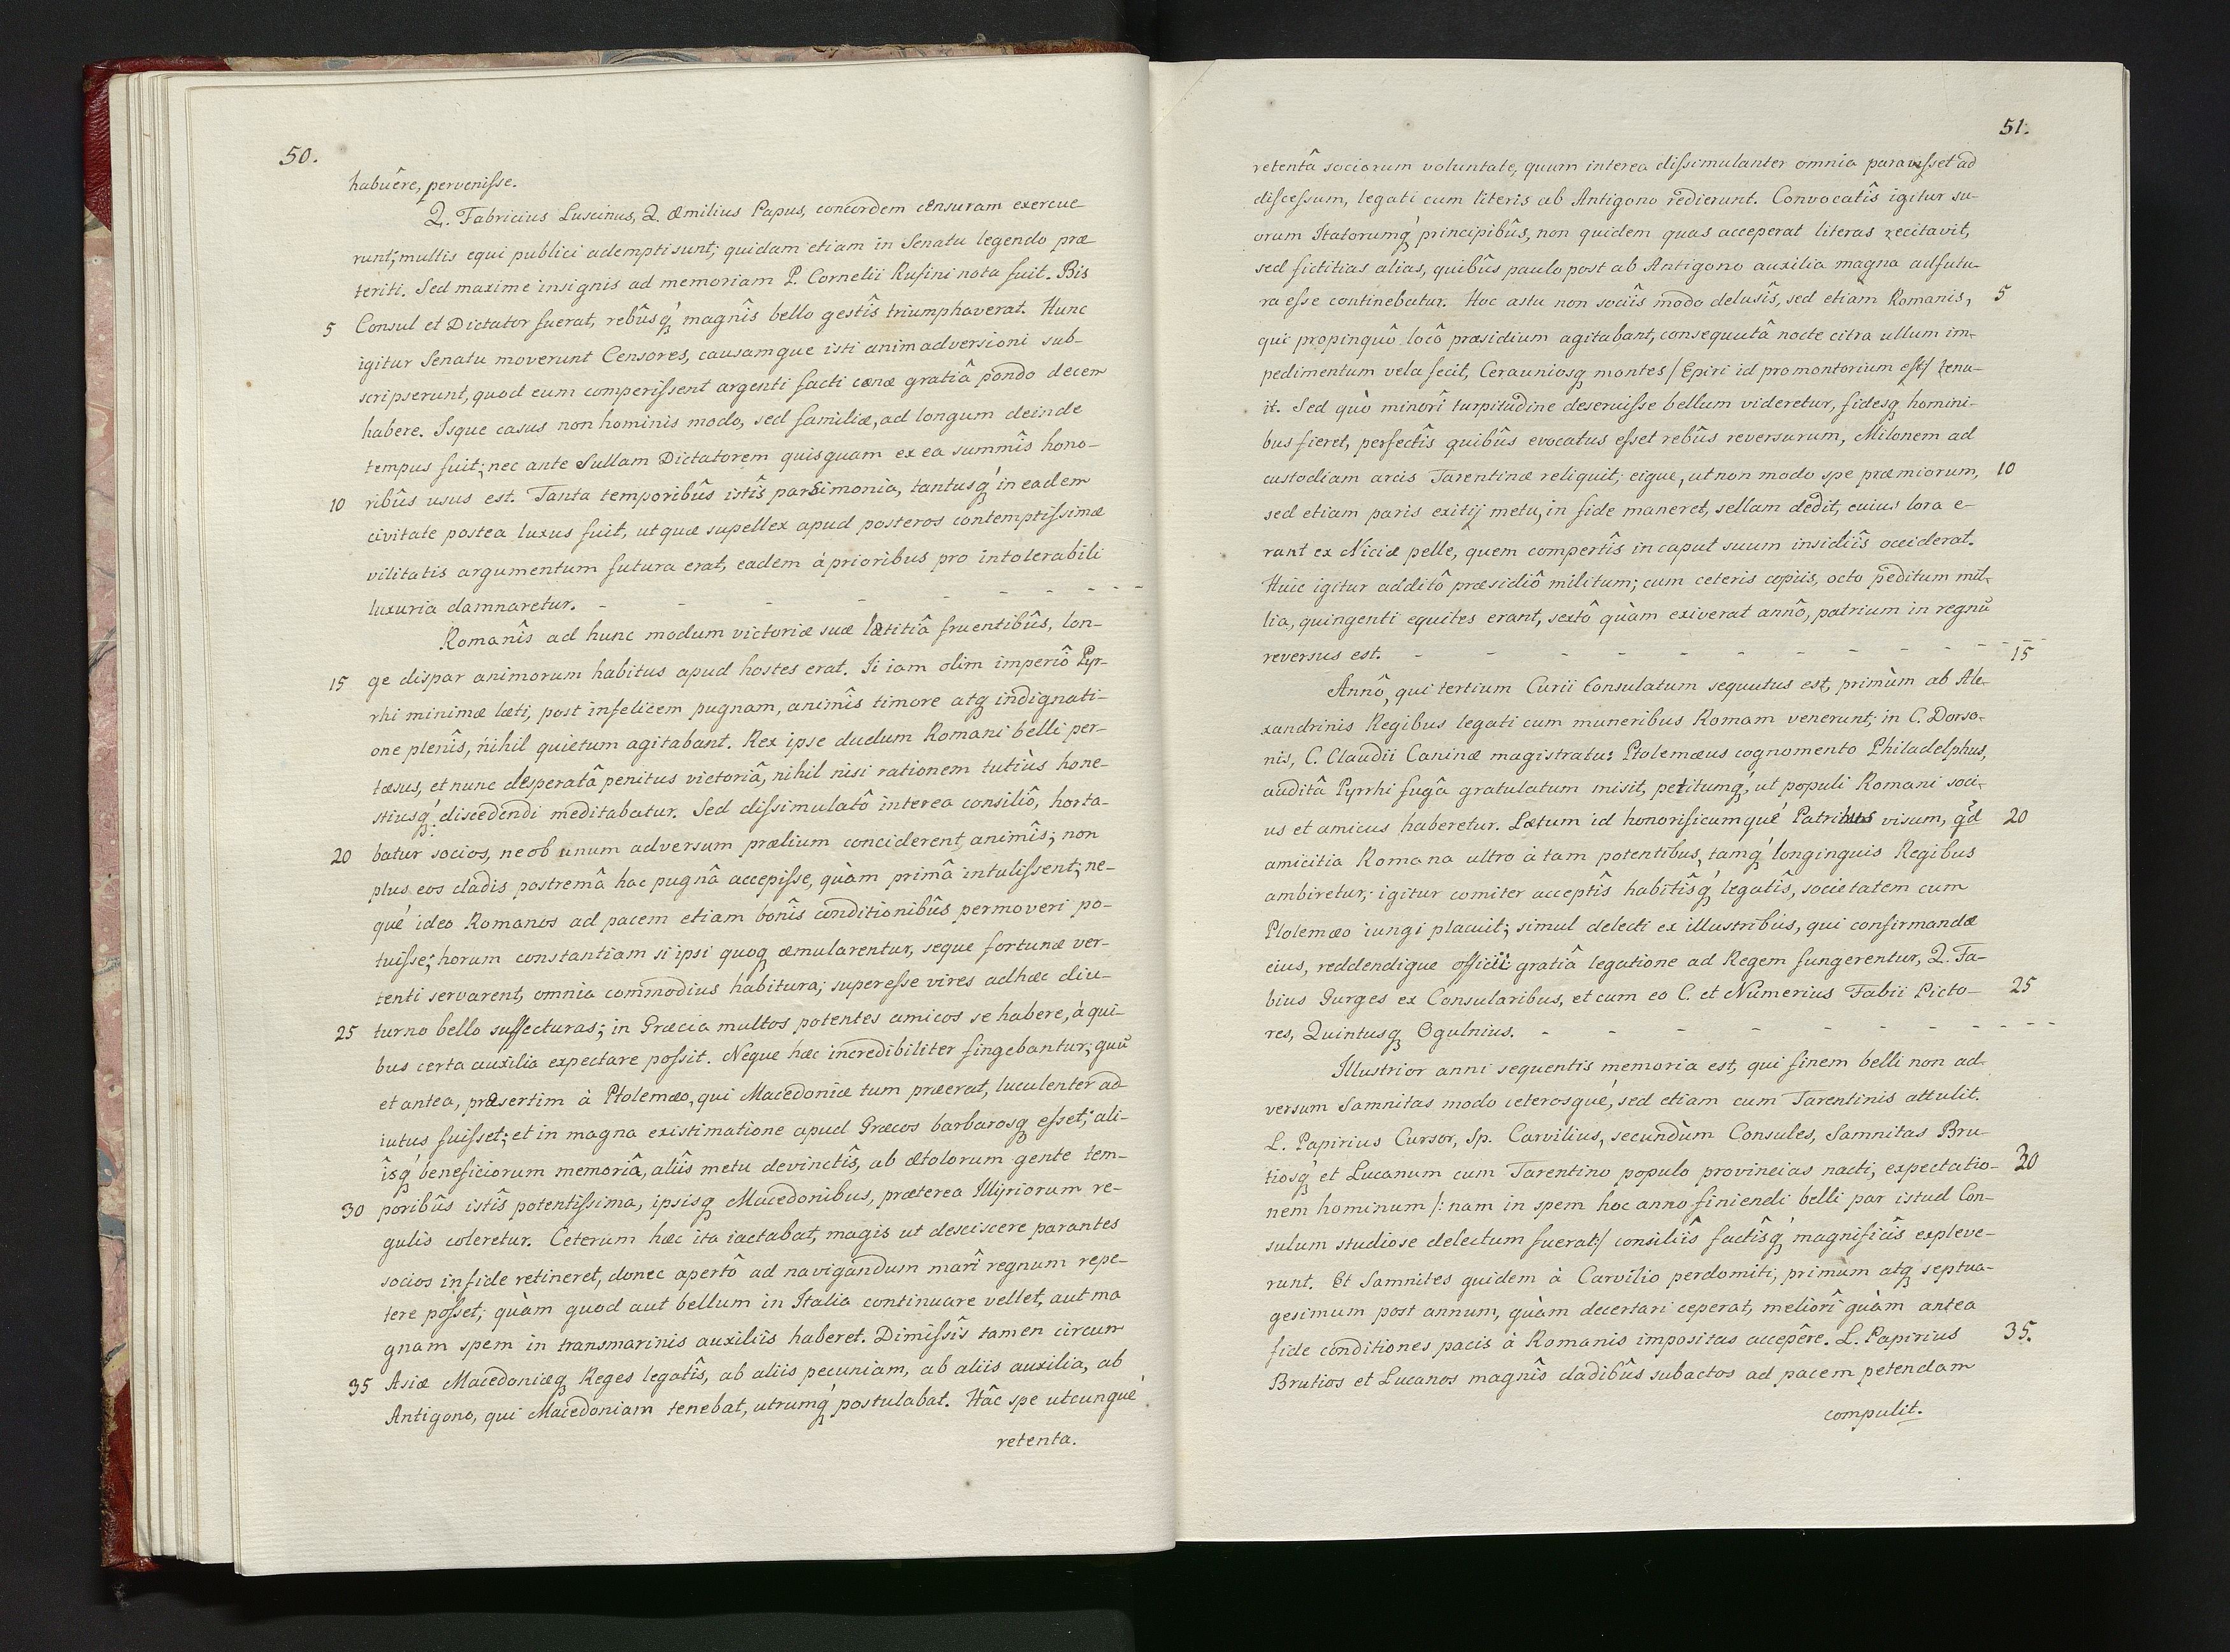 50.
habuêre, pervenisse.
Q. Fabricius Luscinus, Q. Æmilius Papus, concordem censuram exercue
runt; multis equi publici adempti sunt; quidam etiam in Senatu legendo præ
teriti. Sed maxime insignis ad memoriam P. Cornelii Rufini nota fuit. Bis
5 Consul et Dictator fuerat, rebûsq́ magnîs bello gestîs triumphaverat. Hunc
igitur Senatu moverunt Censores, causamque isti animadversioni sub-
scripserunt, quod eum comperissent argenti facti cænæ gratiâ pondo decem
habere. Isque casus non hominis modo, sed familiæ, ad longum deinde
tempus fuit; nec ante Sullam Dictatorem quisquam ex ea summîs hono-
10 ribûs usus est. Tanta temporibûs istîs parsimonia, tantusq́ in eadem
civitate postea luxus fuit, ut quæ supellex apud posteros contemptissimæ
vilitatis argumentum futura erat, eadem à prioribus pro intolerabili
luxuria damnaretur. - - - - - - - - - -
Romanîs ad hunc modum victoriæ suæ lætitiâ fruentibûs, lon-
15 ge dispar animorum habitus apud hostes erat. Ii iam olim imperiô Pyr-
rhi minimæ læti, post infelicem pugnam, animîs timore atq indignati-
one plenîs, nihil quietum agitabant. Rex ipse dudum Romani belli per-
tæsus, et nunc desperatâ penitus victoriâ, nihil nisi rationem tutiùs hone-
stiusq́; discedendi meditabatur. Sed dissimulatô interea consiliô, horta-
20 batur socios, ne ob unum adversum prælium conciderent animîs; non
plus eos cladis postremâ hac pugnâ accepisse, quàm primâ intulissent; ne-
qué ideo Romanos ad pacem etiam bonîs conditionibûs permoveri po-
tuisse; horum constantiam si ipsi quoq æmularentur, seque fortunæ ver-
tenti servarent, omnia commodius habitura; superesse vires adhæc diu-
25 turno bello suffecturas; in Græcia multos potentes amicos se habere, à qui-
bus certa auxilia expectare possit. Neque hæc incredibiliter fingebantur; quū
et antea, præsertim à Ptolemæo, qui Macedoniæ tum præerat, luculenter ad
iutus fuisset; et in magna existimatione apud Græcos barbarosq esset; ali-
îsq́ beneficiorum memoriâ, aliîs metu devinctîs, ab Ætolorum gente tem-
30 poribûs istîs potentissima, ipsisq Macedonibus, præterea Illyriorum re-
gulis coleretur. Ceterùm hæc ita iactabat, magis ut desciscere parantes
socios in fide retineret, donec apertô ad navigandum marî regnum repe-
tere posset; quàm quod aut bellum in Italia continuare vellet, aut ma
gnam spem in transmarinis auxiliis haberet. Dimissîs tamen circum
35 Asiæ Macedoniæq Reges legatîs, ab aliis pecuniam, ab aliis auxilia, ab
Antigono, qui Macedoniam tenebat, utrumq́ postulabat. Hâc spe utcunqué
retenta.
51.
retentâ sociorum voluntate, quum interea dissimulanter omnia paravisset ad
discessum, legati cum literis ab Antigono redierunt. Convocatîs igitur su-
orum Italorumq́ principibûs, non quidem quas acceperat literas recitavit,
sed fictitias alias, quibûs paulo post ab Antigono auxilia magna adfutu-
ra esse continebatur. Hoc astu non sociîs modo delusîs, sed etiam Romanis, 5
qui propinquô locô præsidium agitabant, consequutâ nocte citra ullum im-
pedimentum vela fecit, Cerauniosq montes /Epiri id promontorium est/ tenu-
it. Sed quò minorî turpitudine deseruisse bellum videretur, fidesq homini-
bus fieret, perfectîs quibûs evocatus esset rebûs reversurum, Milonem ad
custodiam arcis Tarentinæ reliquit; eique, ut non modo spe præmiorum, 10
sed etiam paris exitij metu, in fide maneret, sellam dedit, cuius lora e-
rant ex Niciæ pelle, quem compertîs in caput suum insidiîs occiderat.
Huic igitur additô præsidiô militum; cum ceteris copiis, octo peditum mil-
lia, quingenti equites erant, sextô quàm exiverat annô, patrium in regnū
reversus est. - - - - - - - - - - 15
Annô, qui tertium Curii Consulatum sequutus est, primùm ab Ale-
xandrinis Regibus legati cum muneribus Romam venerunt; in C. Dorso-
nis, C. Claudii Caninæ magistratu: Ptolemæus cognomento Philadelphus,
auditâ Pyrrhi fugâ gratulatum misit, petitumq́, ut populi Romani soci-
us et amicus haberetur. Lætum id honorificumqué Patribus visum, q̊d 20
amicitia Romana ultro à tam potentibus, tamq́ longinquis Regibus
ambiretur; igitur comiter acceptîs habitîsq́ legatîs, societatem cum
Ptolemæo iungi placuit; simul delecti ex illustribus, qui confirmandæ
eius, reddendique officii gratiâ legatione ad Regem fungerentur, Q. Fa-
bius Gurges ex Consularibus, et cum eo C. et Numerius Fabii Picto- 25
res, Quintusq Ogulnius. - - - - - - - - - -
Illustrior anni sequentis memoria est, qui finem belli non ad-
versum Samnitas modo ceterosqué, sed etiam cum Tarentinis attulit.
L. Papirius Cursor, Sp. Carvilius, secundùm Consules, Samnitas Bru-
tiosq́ et Lucanum cum Tarentino populo provincias nacti, expectatio- 30
nem hominum /: nam in spem hoc anno finiendi belli par istud Con-
sulum studiose delectum fuerat:/ consiliîs factîsq́ magnificîs expleve-
runt. Et Samnites quidem à Carvilio perdomiti, primùm atq septua-
gesimum post annum, quàm decertari ceperat, meliorî quàm antea
fide conditiones pacis à Romanis impositas accepêre. L. Papirius 35.
Brutios et Lucanos magnîs cladibûs subactos ad pacem petendam
compulit.